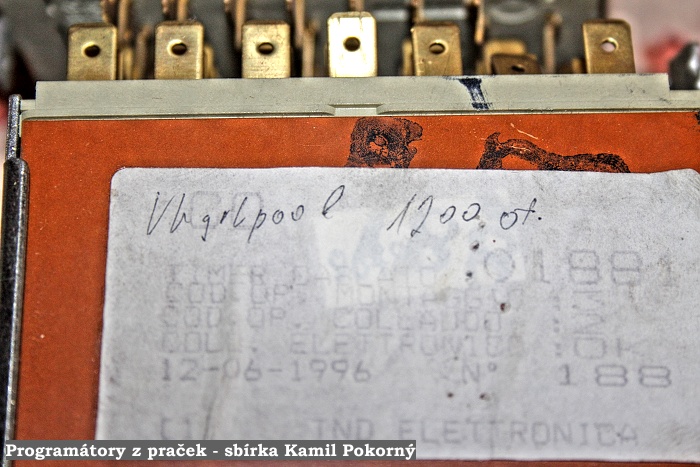 Whirlpool 1200 ot.
TIMER 0188
COD OP. MONTAGGIO
COD OP. COLLAUDO
COLL. ELETTRONICO OK
12-06-1996 N° 188
IND ELETTRONICA
Programátory z praček - sbírka Kamil Pokorný